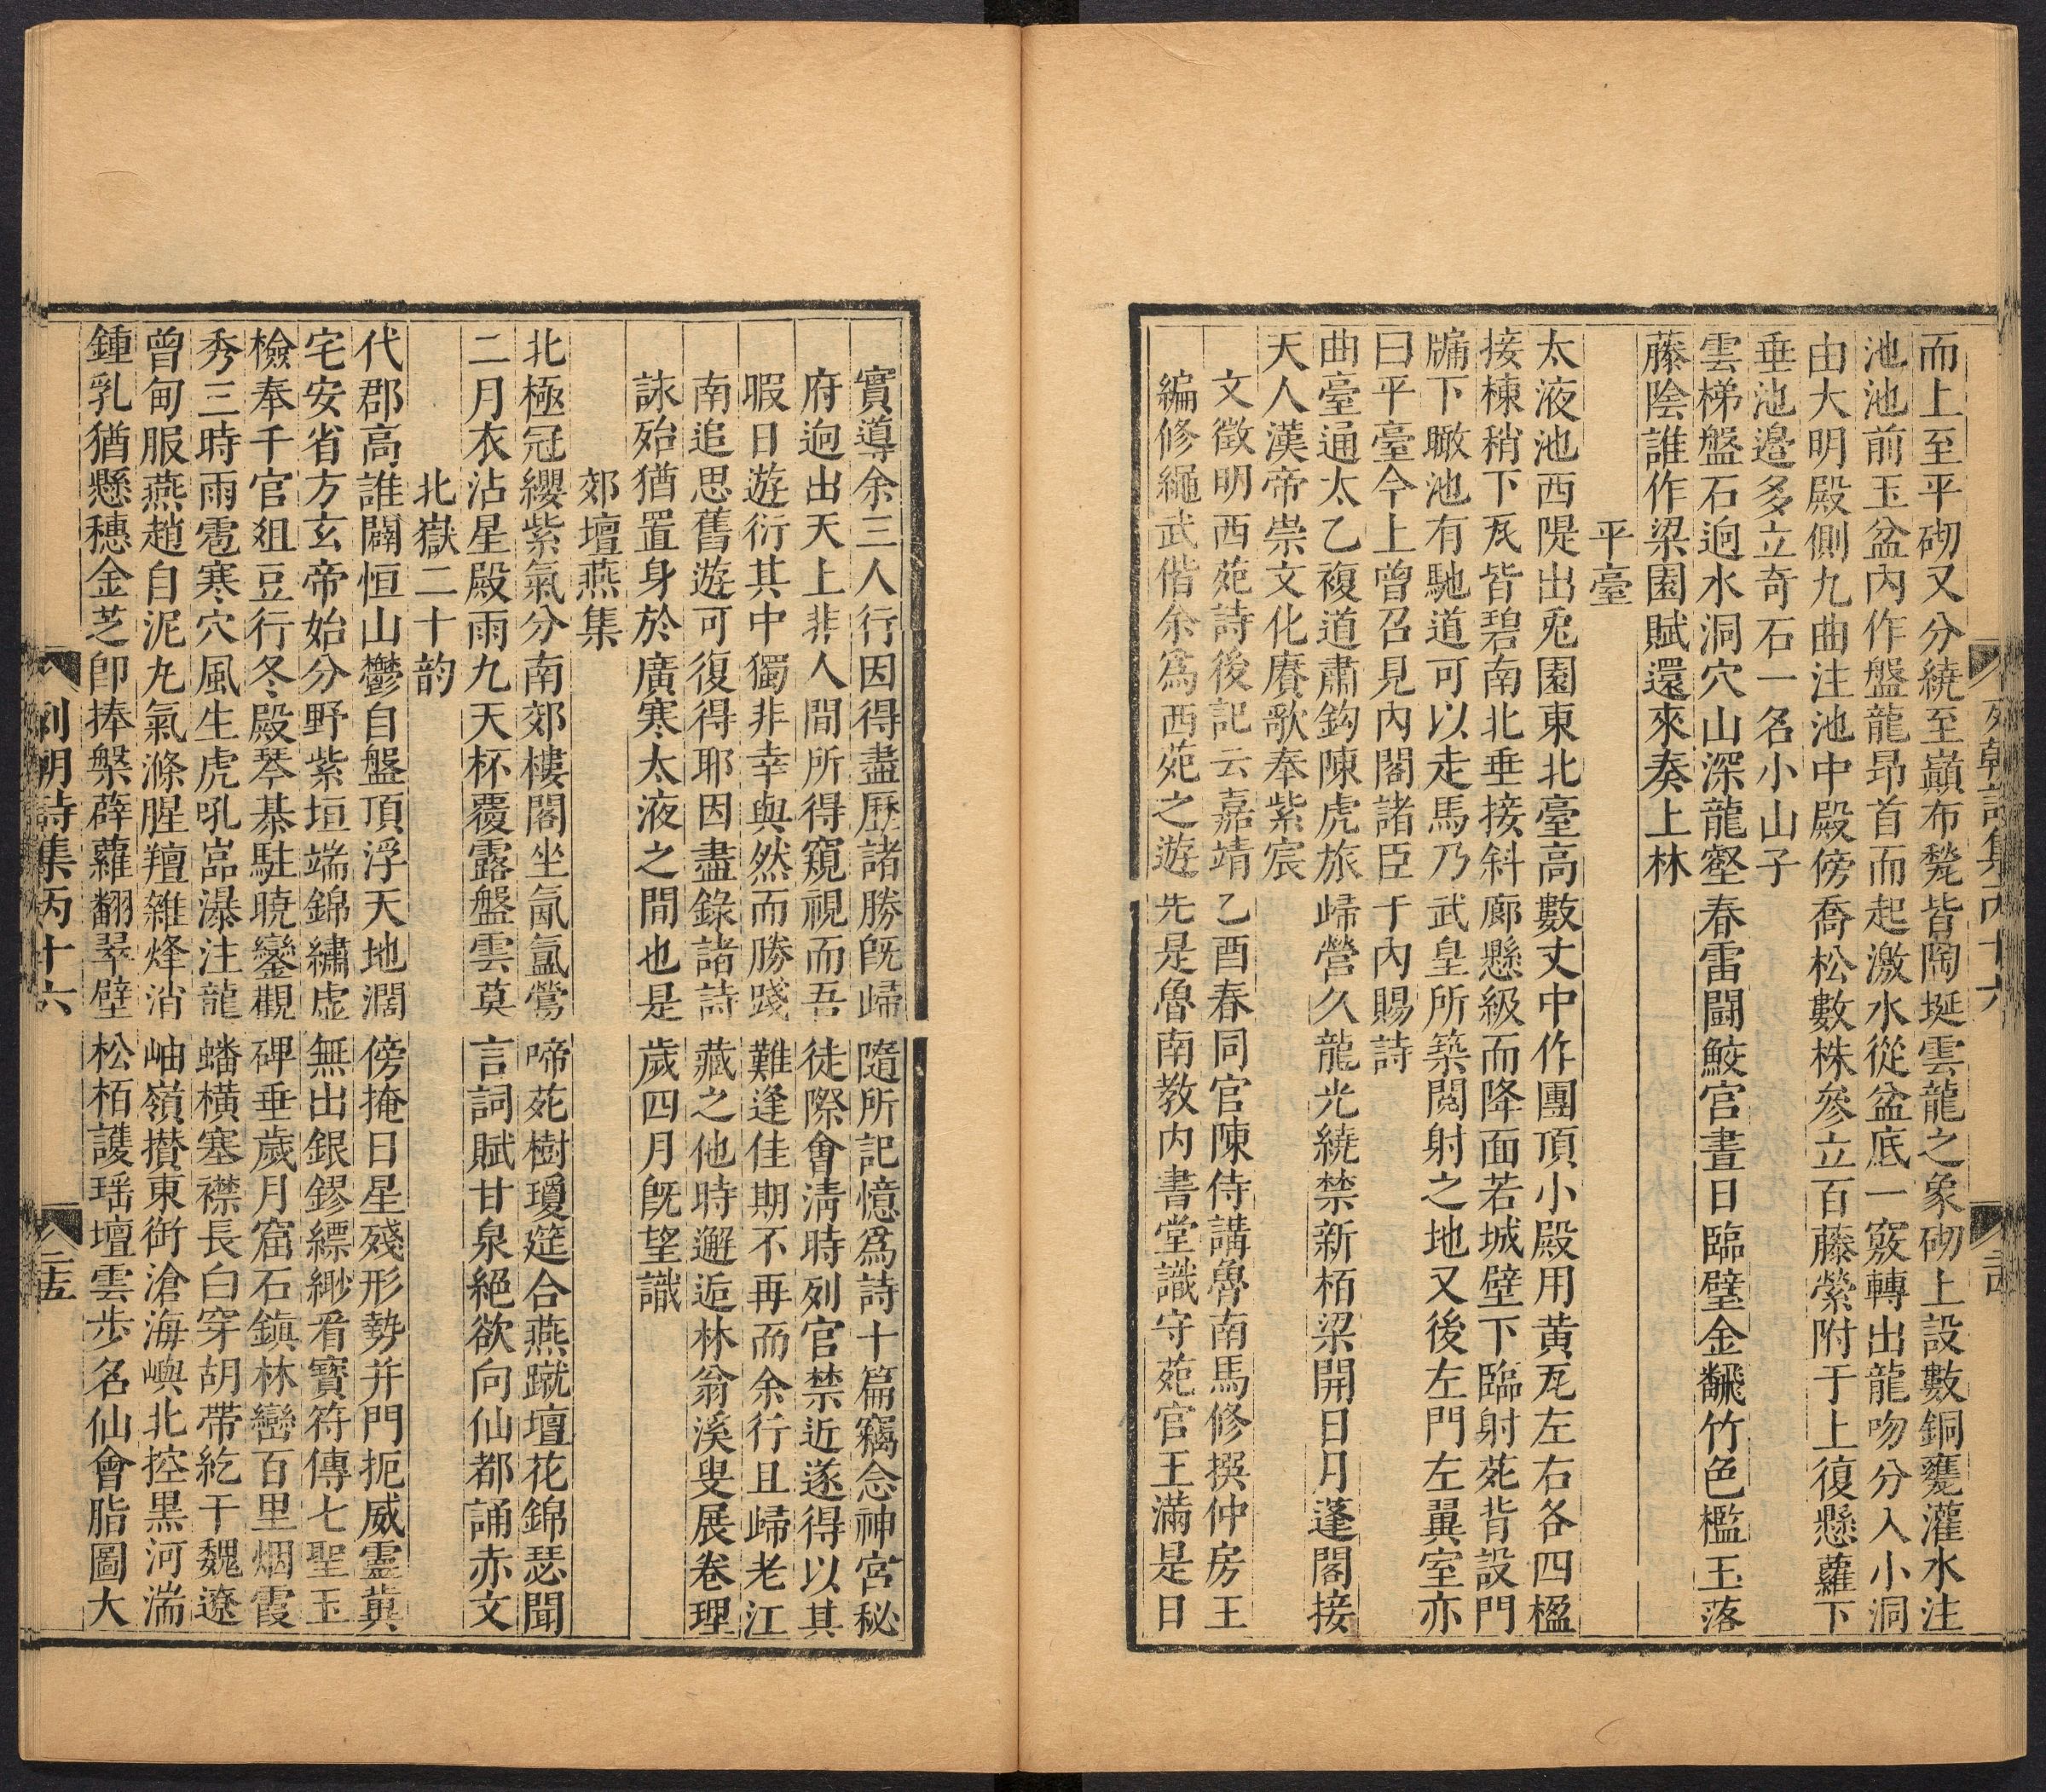 而上至平砌又分繞至巔布甃皆陶埏雲龍之象砌上設數銅甕灌水注
池池前玉盆內作盤龍昂首而起激水從盆底一竅轉出龍吻分入小洞
由大明殿側九曲注池中殿傍喬松數株參立百藤縈附于上復懸蘿下
垂池邉多立奇石一名小山子
雲梯盤石逈水洞穴山深龍壑春雷闘鮫宫晝日臨璧金飜竹色檻玉落
藤陰誰作梁園賦還來奏上林
平臺
太液池西隄出兎園東北臺高數丈中作團頂小殿用黄瓦左右各四楹
接棟稍下瓦皆碧南北垂接斜廊懸級而降面若城壁下臨射苑背設門
牖下瞰池有馳道可以走馬乃武皇所築閱射之地又後左門左翼室亦
曰平臺今上曾召見內閣諸臣于內賜詩
曲臺通太乙複道肅鈎陳虎旅歸營久龍光繞禁新栢梁開日月蓬閣接
天人漢帝崇文化賡歌奉紫宸
文徵明西苑詩後記云嘉靖乙酉春同官陳侍講魯南馬修撰仲房王
編修繩武偕余爲西苑之遊先是魯南教内書堂識守苑官王滿是日
列朝詩集丙十六
二十四
實導余三人行因得盡歷諸勝旣歸隨所記憶爲詩十篇竊念神宮秘
府逈出天上非人間所得窺視而吾徒際會淸時列官禁近遂得以其
暇日遊衍其中獨非幸與然而勝踐難逢佳期不再而余行且歸老江
南追思舊遊可復得耶因盡錄諸詩藏之他時邂逅林翁溪叟展卷理
詠殆猶置身於廣寒太液之間也是歲四月旣望識
郊壇燕集
北極冠纓紫氣分南郊樓閣坐氤氳鶯啼苑樹瓊筵合燕蹴壇花錦瑟聞
二月衣沾星殿雨九天杯覆露盤雲莫言詞賦甘泉絕欲向仙都誦赤文
北嶽二十韵
代郡高誰闢恒山鬱自盤頂浮天地濶傍掩日星殘形勢并門扼威靈蓂
宅安省方玄帝始分野紫垣端錦繡虛無出銀鏐縹緲看寶符傳七聖玉
檢奉千官俎豆行冬殿琴棊駐曉鑾觀碑垂歲月窟石鎭林巒百里烟霞
秀三時雨雹寒穴風生虎吼嵓瀑注龍蟠橫塞襟長白穿胡帶紇干魏遼
曾甸服燕趙自泥九氣滌腥羶雜烽消岫嶺攅東衛滄海嶼北控黒河湍
鍾乳猶懸穗金芝卽捧槃薜蘿翻翠壁松栢護瑶壇雲步名仙會脂圖大
列朝詩集丙十六
二十五